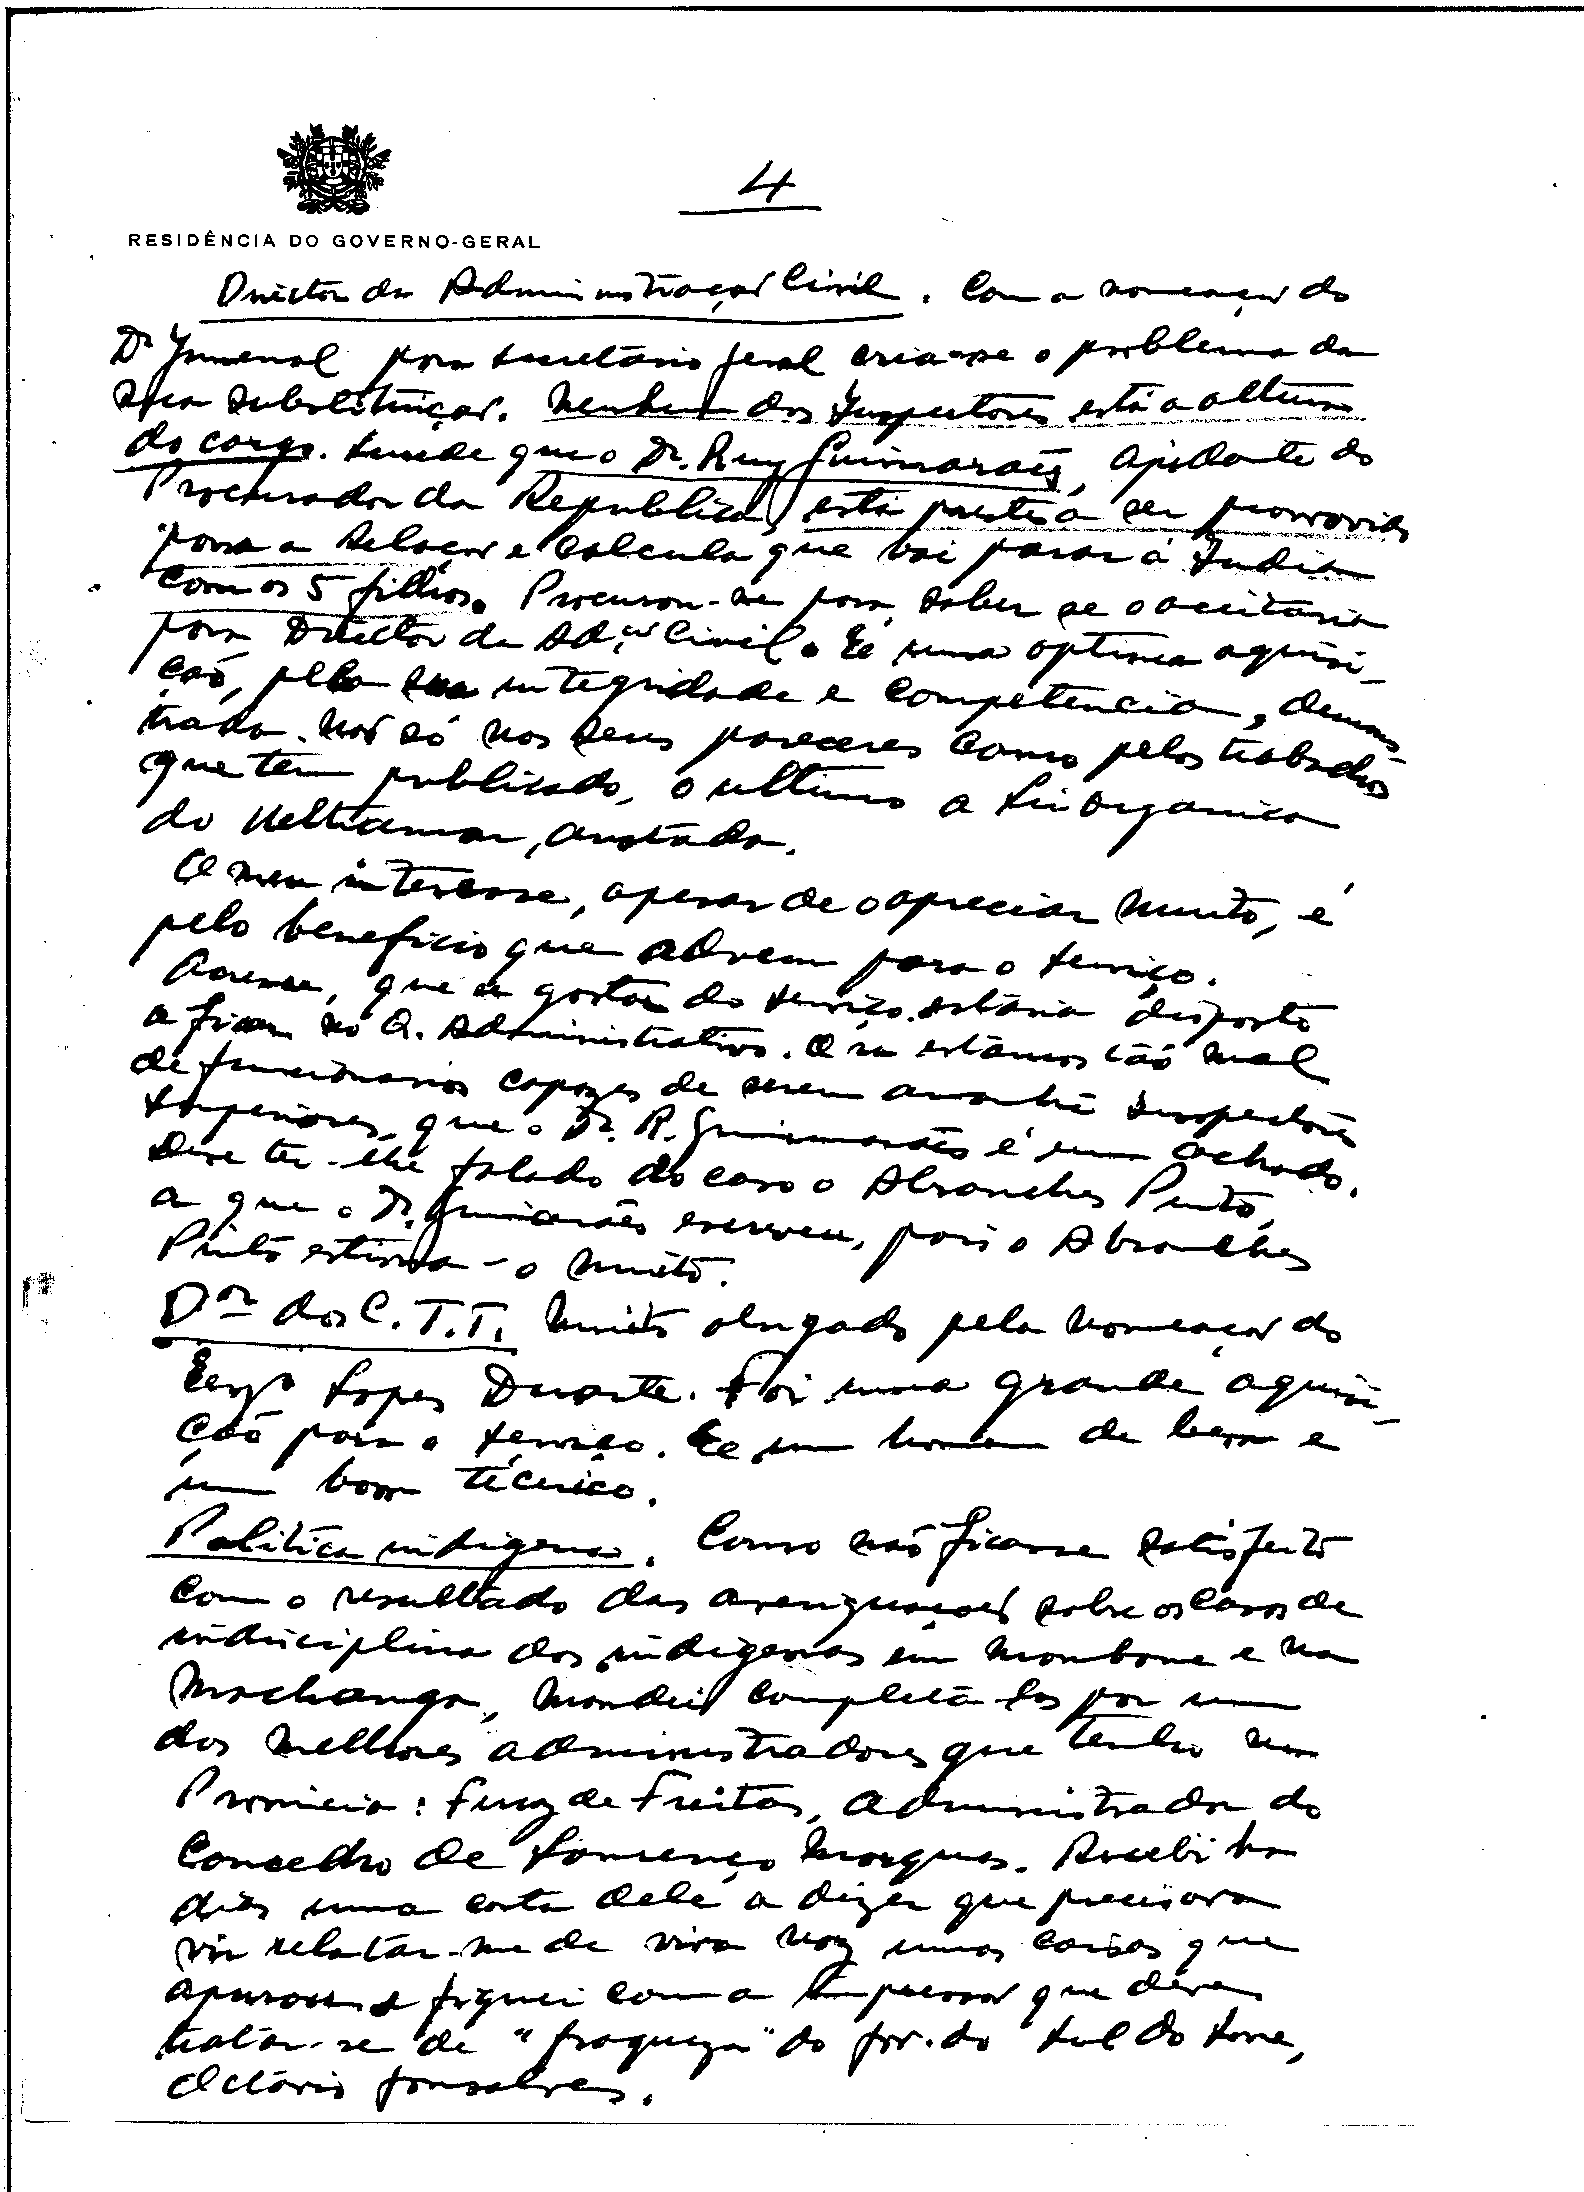 4
RESIDÊNCIA DO GOVERNO-GERAL
Director da Administração Civil. Com a nomeação do
Dr Juvenal para Secretário Geral cria-se o problema da
sua substituição. Nenhum dos Inspectores está à altura
do cargo. Sucede que o Dr. Ruy Guimarães, ajudante do
Procurador da Republica, está prestes a ser promovido
para a Relação e calcula que vai parar à India
com os 5 filhos. Procurou-me para saber se o aceitaria
para Director da Adção Civil. É uma optima aquisi-
ção, pela sua integridade e competencia, demons
trada não só nos seus pareceres como pelos trabalhos
que tem publicado, o ultimo a Lei Organica
do Ultramar, anotada.
O meu interesse, apesar de o apreciar muito, é
pelo beneficio que advem para o serviço.
Acresce, que se gostar do serviço estaria disposto
a ficar no Q. Administrativo. E nós estamos tão mal
de funcionarios capazes de serem amanhã Inspectores
Superiores, que o Dr. R. Guimarães é um achado.
Deve ter-lhe falado do caso o Abranches Pinto,
a que o Dr. Guimarães escreveu, pois o Abranches
Pinto estima-o muito.
Dor dos C.T.T. Muito obrigado pela nomeação do
Engo Lopes Duarte. Foi uma grande aquisi-
ção para o serviço. É um homem de bem e
um bom técnico.
Politica indigena. Como não ficasse satisfeito
com o resultado das averiguações sobre os casos de
indisciplina dos indigenas em Mambone e na
Machanga, mandei completá-los por um
dos melhores administradores que tenho na
Provincia: Ferraz de Freitas, administrador do
Concelho de Lourenço Marques. Recebi ha
dias uma carta dele a dizer que precisava
vir relatar-me de viva voz umas coisas que
apurou e fiquei com a impressão que deve
tratar-se de "fraqueza" do gov. do Sul do Save,
Octávio Gonçalves.